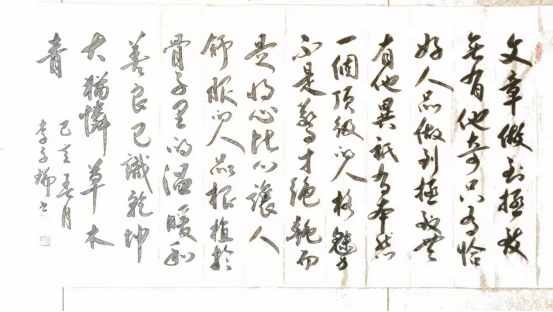 文章做到極致
無有他奇只為恰
好人品做到極致無
有他異祇為本然
一個頂級的人格魅力
不是驚才絕艷而
是將心比心讓人
舒服的人品根植於
骨子里的溫暖和
善良已識乾坤
大猶憐草木
青
己亥春月
李子瑞书